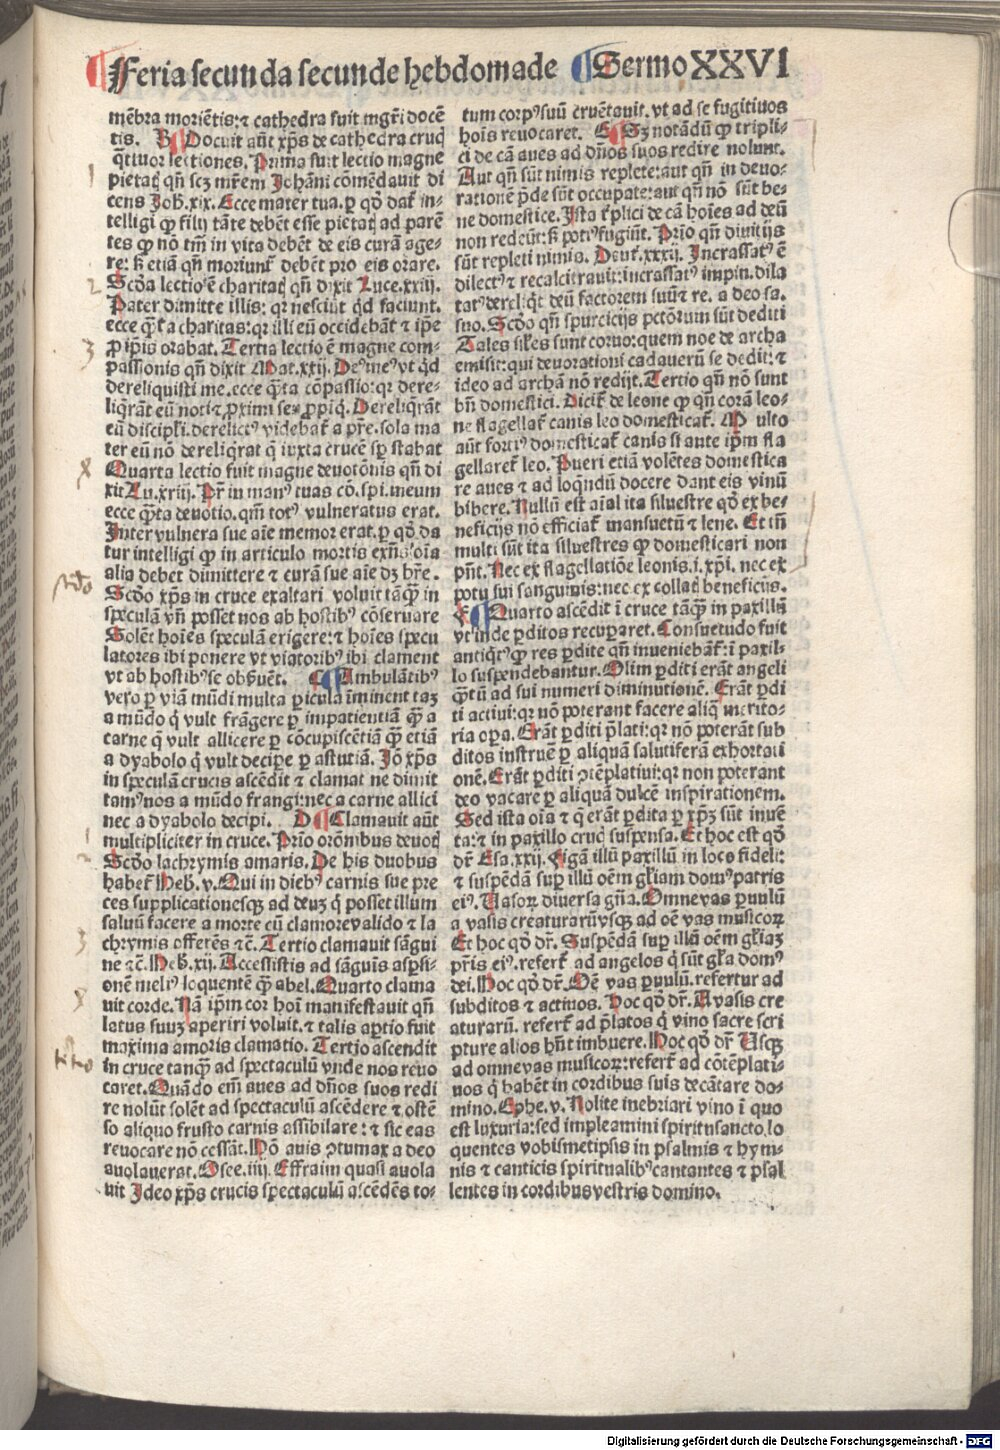 Feria secunda secunde hebdomade Sermo XXVI
mēbra moriētis: ⁊ cathedra fuit mgr̄i docē
tis. B Docuit aūt xp̄s de cathedra crucꝭ
q̄ttuor lectiones. Prima fuit lectio magne
pietatꝭ qn̄ scꝫ mr̄em Johāni cōmēdauit di
cens Joh̄. xix. Ecce mater tua. ꝑ qd̓ dat̄ in-
telligi ꝙ filij tāte debēt esse pietatꝭ ad parē
tes ꝙ nō tm̄ in vita debēt de eis curā age-
re: sꝫ etiā qn̄ moriunt̄ debēt pro eis orare.
Scd̓a lectio ē charitatꝭ qn̄ dixit Luce. xxiij.
Pater dimitte illis: qr nesciūt qd̓ faciunt.
ecce q̄ta charitas: qr illi eū occidebāt ⁊ ip̄e
ꝓ ip̄is orabat. Tertia lectio ē magne com-
passionis qn̄ dixit Mat. xxij. De⁹ me⁹ vt qd̓
dereliquisti me. ecce q̄ta cōpassio: qr dere-
liq̄rāt eū noti ⁊ ꝓximi
eū discipl̓i. derelict⁹ videbat̄ a pr̄e. sola ma
ter eū nō dereliq̄rat q̄ iuxta crucē sꝑ stabat
Quarta lectio fuit magne deuotōnis qn̄ di
xit Lu. xxiij. Pr̄ in man⁹ tuas cō. spi. meum
ecce q̄ta deuotio. qm̄ tot⁹ vulneratus erat.
Inter vulnera sue aīe memor erat. ꝑ qd̓ da
tur intelligi ꝙ in articulo mortis exn̄s oīa
alia debet dimittere ⁊ curā sue aīe dꝫ hr̄e.
Scd̓o xp̄s in cruce exaltari voluit tāq̄ in
speculā vn̄ posset nos ab hostib⁹ cōseruare
Solēt hoīes speculā erigere: ⁊ hoīes specu
latores ibi ponere vt viatorib⁹ ibi clament
vt ab hostib⁹ se obs̄uēt. C Ambulātib⁹
vero ꝑ viā mūdi multa ꝑicula īminent taꝫ
a mūdo q̄ vult frāgere ꝑ impatientiā q̄ a
carne q̄ vult allicere ꝑ cōcupiscētiā q̄ etiā
a dyabolo q̄ vult decipe ꝑ astutiā. Jō xp̄s
in speculā crucis ascēdit ⁊ clamat ne dimit
tam⁹ nos a mūdo frangi: nec a carne allici
nec a dyabolo decipi. D Clamauit aūt
multipliciter in cruce. Prīo orōnibus deuotꝭ
Scd̓o lachrymis amaris. De his duobus
habet̄ Heb̄. v. Qui in dieb⁹ carnis sue pre
ces supplicationesqꝫ ad deuꝫ q̄ posset illum
saluū facere a morte cū clamore valido ⁊ la
chrymis offerēs ⁊c̄. Tertio clamauit sāgui
ne ⁊c̄. Heb̄. xij. Accessistis ad sāguis asp̄si-
onē meli⁹ loquentē q̄ abel. Quarto clama
uit corde. Nā ip̄m cor hoī manifestauit qn̄
latus suuꝫ aperiri voluit. ⁊ talis aptio fuit
maxima amoris clamatio. Tertio ascendit
in cruce tanq̄ ad spectaculū vnde nos reuo
caret. Quādo em̄ aues ad dn̄os suos redi
re nolūt solēt ad spectaculū ascēdere ⁊ ostē
so aliquo frusto carnis assibilare: ⁊ sic eas
reuocare nō cessāt. Hō auis ꝯtumax a deo
auolauerat. Osee. iiij. Effraim quasi auola
uit Jdeo xp̄s crucis spectaculū ascēdēs to-
tum corp⁹ suū cruētauit. vt ad se fugitiuos
hoīs reuocaret. E Sꝫ notādū ꝙ tripli-
ci de cā aues ad dn̄os suos redire nolunt.
Aut qn̄ sūt nimis replete: aut qn̄ in deuo-
rationē p̄de sūt occupate: aut qn̄ nō sūt be-
ne domestice. Jsta t̄plici de cā hoīes ad deū
non redeūt: sꝫ poti⁹ fugiūt. Prīo qn̄ diuitijs
sūt repleti nimis. Deut̄. xxxij. Jncrassat⁹ ē
dilect⁹ ⁊ recalcitrauit: incrassat⁹ impin. dila
tat⁹ dereliq̄t deū factorem suū ⁊ re. a deo sa.
suo. Scd̓o qn̄ spurcicijs pctōrum sūt dediti
Tales sil̓es sunt coruo: quem noe de archa
emisit: qui deuorationi cadauerū se dedit: ⁊
ideo ad archā nō redijt. Tertio qn̄ nō sunt
bn̄ domestici. Dicit̄ de leone ꝙ qn̄ corā leo-
ne flagellat̄ canis leo domesticat̄. Multo
aūt forti⁹ domesticat̄ canis si ante ip̄m fla
gellaret̄ leo. Pueri etiā volētes domestica
re aues ⁊ ad loq̄ndū docere dant eis vinū
bibere. Nullū est aīal ita siluestre qd̓ ex be-
neficijs nō efficiat̄ mansuetū ⁊ lene. Et tn̄
multi sūt ita siluestres ꝙ domesticari non
pn̄t. Nec ex flagellatiōe leonis. i. xp̄i. nec ex
potu sui sanguinis: nec ex collatꝭ beneficijs.
F Quarto ascēdit ī cruce tāq̄ in paxillū
vt inde ꝑditos recuꝑaret. Consuetudo fuit
antiq̄t⁹ ꝙ res ꝑdite qn̄ inueniebāt̄: ī paxil-
lo suspendebantur. Olim ꝑditi erāt angeli
q̄tū ad sui numeri diminutionē. Erāt ꝑdi
ti actiui: qr nō poterant facere aliq̄ merito-
ria oꝑa. Erāt ꝑditi p̄lati: qr nō poterāt sub
ditos instruē ꝑ aliquā salutiferā exhortati
onē. Erāt ꝑditi ꝯtēplatiui: qr non poterant
deo vacare ꝑ aliquā dulcē inspirationem.
Sed ista oīa ⁊ q̄ erāt ꝑdita ꝑ xp̄ꝫ sūt inuē
ta: ⁊ in paxillo crucꝭ suspensa. Et hoc est qd̓
dr̄ Esa. xxij. Figā illū paxillū in loco fideli:
⁊ suspēdā suꝑ illū oēm gl̓iam dom⁹ patris
ei⁹. Vasoꝝ diuersa gn̄a. Omne vas ꝑuulū
a vasis creaturarū vsqꝫ ad oē vas musicoꝝ
Et hoc qd̓ dr̄. Suspēdā suꝑ illū oēm gl̓iaꝫ
pr̄is ei⁹. refert̄ ad angelos q̄ sūt gl̓a dom⁹
dei. Hoc qd̓ dr̄. Oē vas ꝑuulū. refertur ad
subditos ⁊ actiuos. Hoc qd̓ dr̄. A vasis cre
aturarū. refert̄ ad p̄latos q̄ vino sacre scri
pture alios hn̄t imbuere. Hoc qd̓ dr̄ Vsqꝫ
ad omne vas musicoꝝ: refert̄ ad cōtēplati-
uos q̄ habēt in cordibus suis decātare do-
mino. Ephe. v. Nolite inebriari vino ī quo
est luxuria: sed impleamini spiritu sancto, lo
quentes vobismetipsis in psalmis ⁊ hym-
nis ⁊ canticis spiritualib⁹ cantantes ⁊ psal
lentes in cordibus vestris domino.
Digitalisierung gefördert durch die Deutsche Forschungsgemeinschaft - DFG